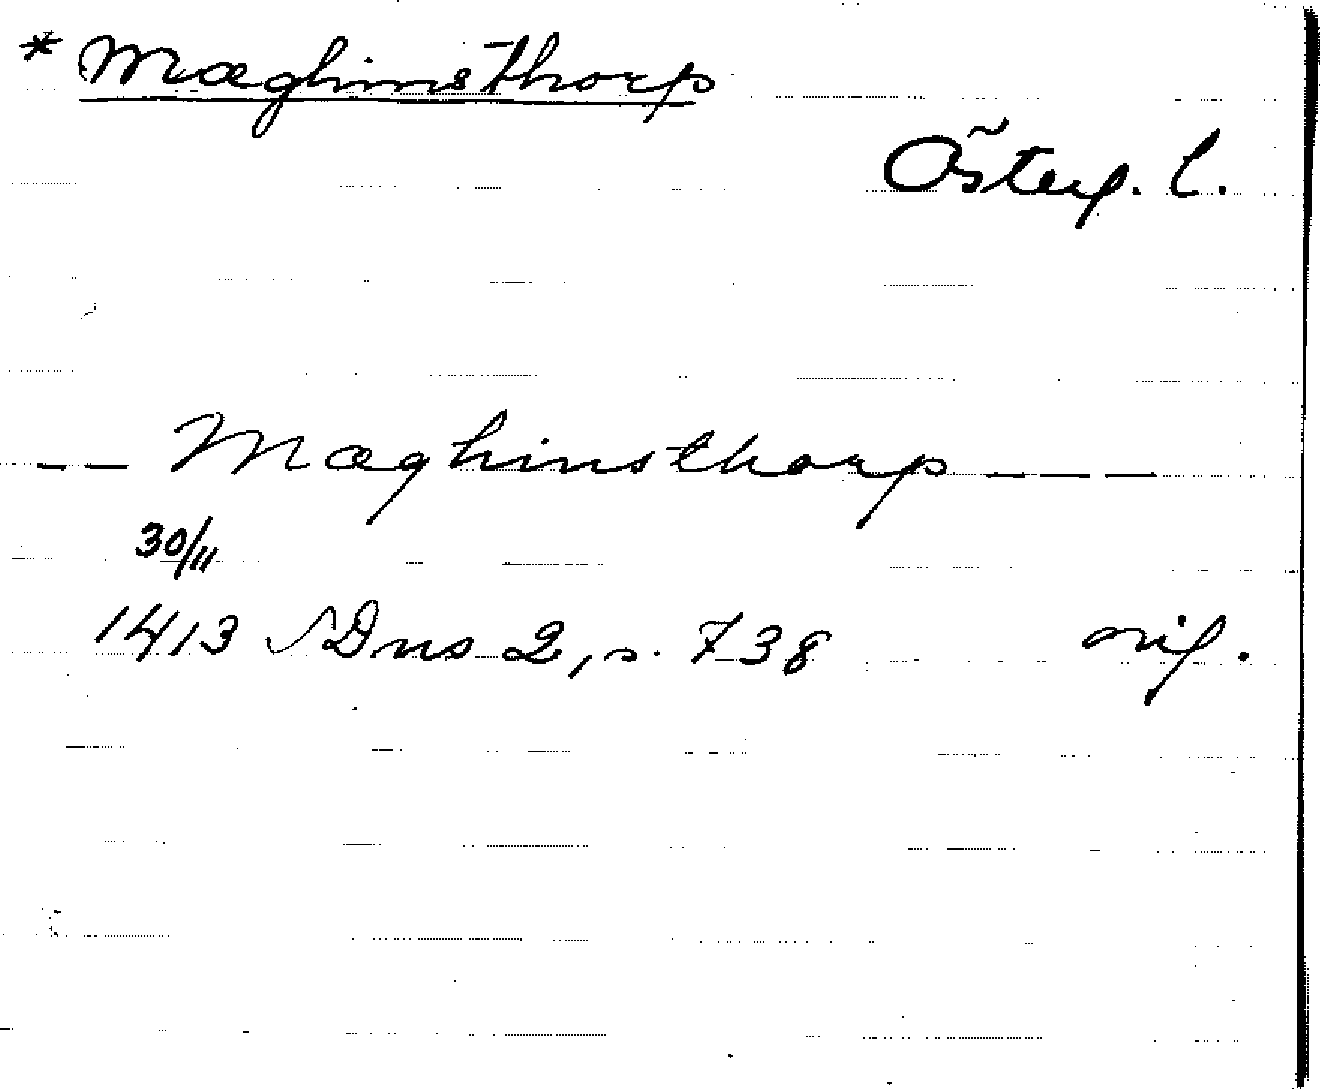 * Mæghinsthorp
Österg. l.
— — Mæghinsthorp — — —
30/11
1413 SDns 2, s. 738 nif.